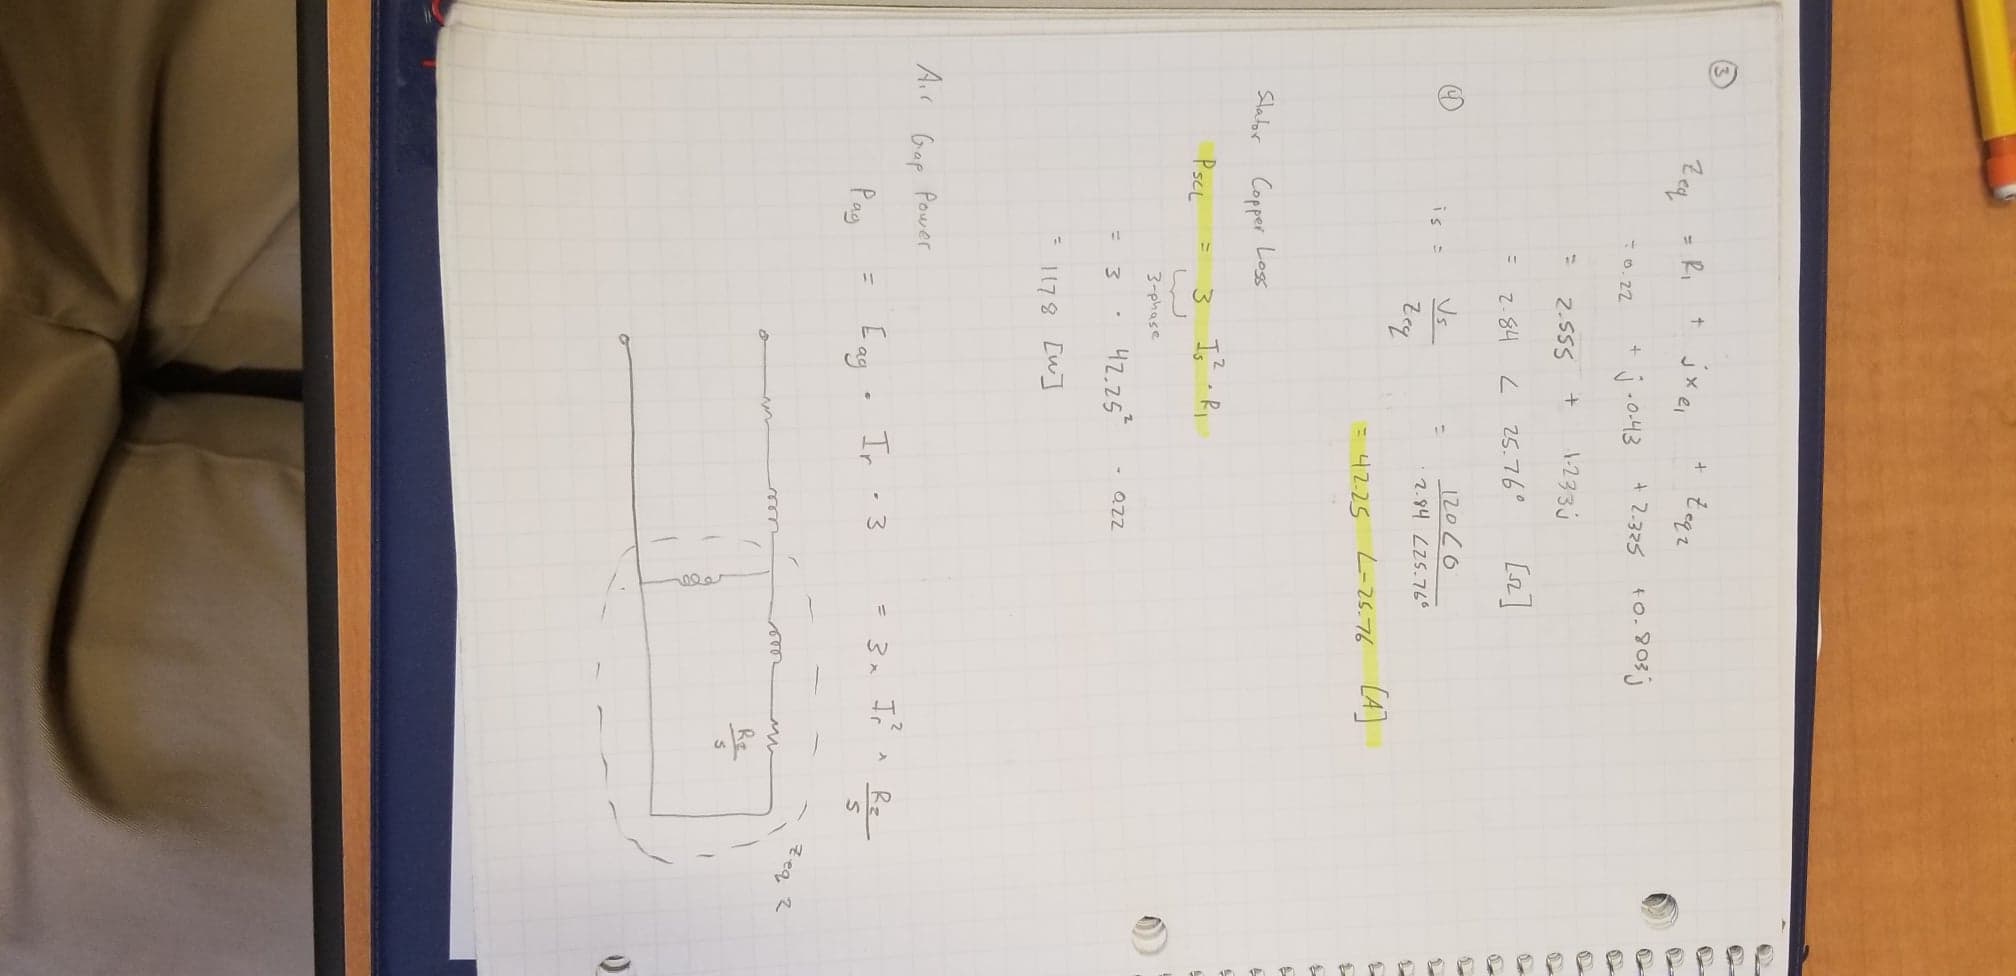 ③
Zeq = R1 + jxe1 + Zeq2
= 0.22 + j·0.43 + 2.325 + 0.803j
= 2.555 + 1.233j
= 2.84 ∠ 25.76° [Ω]
④
is = Vs / Zeq = 120∠0 / 2.84 ∠25.76°
= 42.25 ∠-25.76 [A]
Stator Copper Loss
PSCL = 3 Is² · R1
3-phase
= 3 · 42.25² · 0.22
= 1178 [W]
Air Gap Power
Pag = Eag · Ir · 3 = 3 × Ir² × R2 / s
Zeq 2
R2 / s